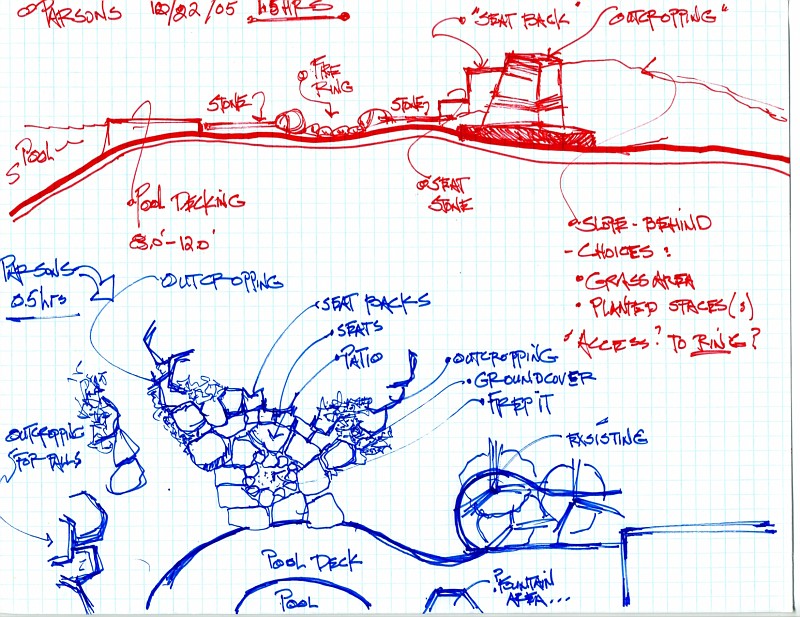 PARSONS 10/22/05 .45HRS
"SEAT BACK"
OUTCROPPING"
FIRE
RING
STONE?
STONE?
POOL
POOL DECKING
8.0'-12.0'
SEAT
STONE
SLOPE-BEHIND
- CHOICES:
• GRASS AREA
• PLANTED SPACES(S)
ACCESS? TO RING?
PARSONS
0.5hrs
OUTCROPPING
SEAT BACKS
SEATS
PATIO
OUTCROPPING
GROUNDCOVER
FIREPIT
EXSISTING
OUTCROPPING
FOR FALLS
POOL DECK
POOL
FOUNTAIN
AREA...